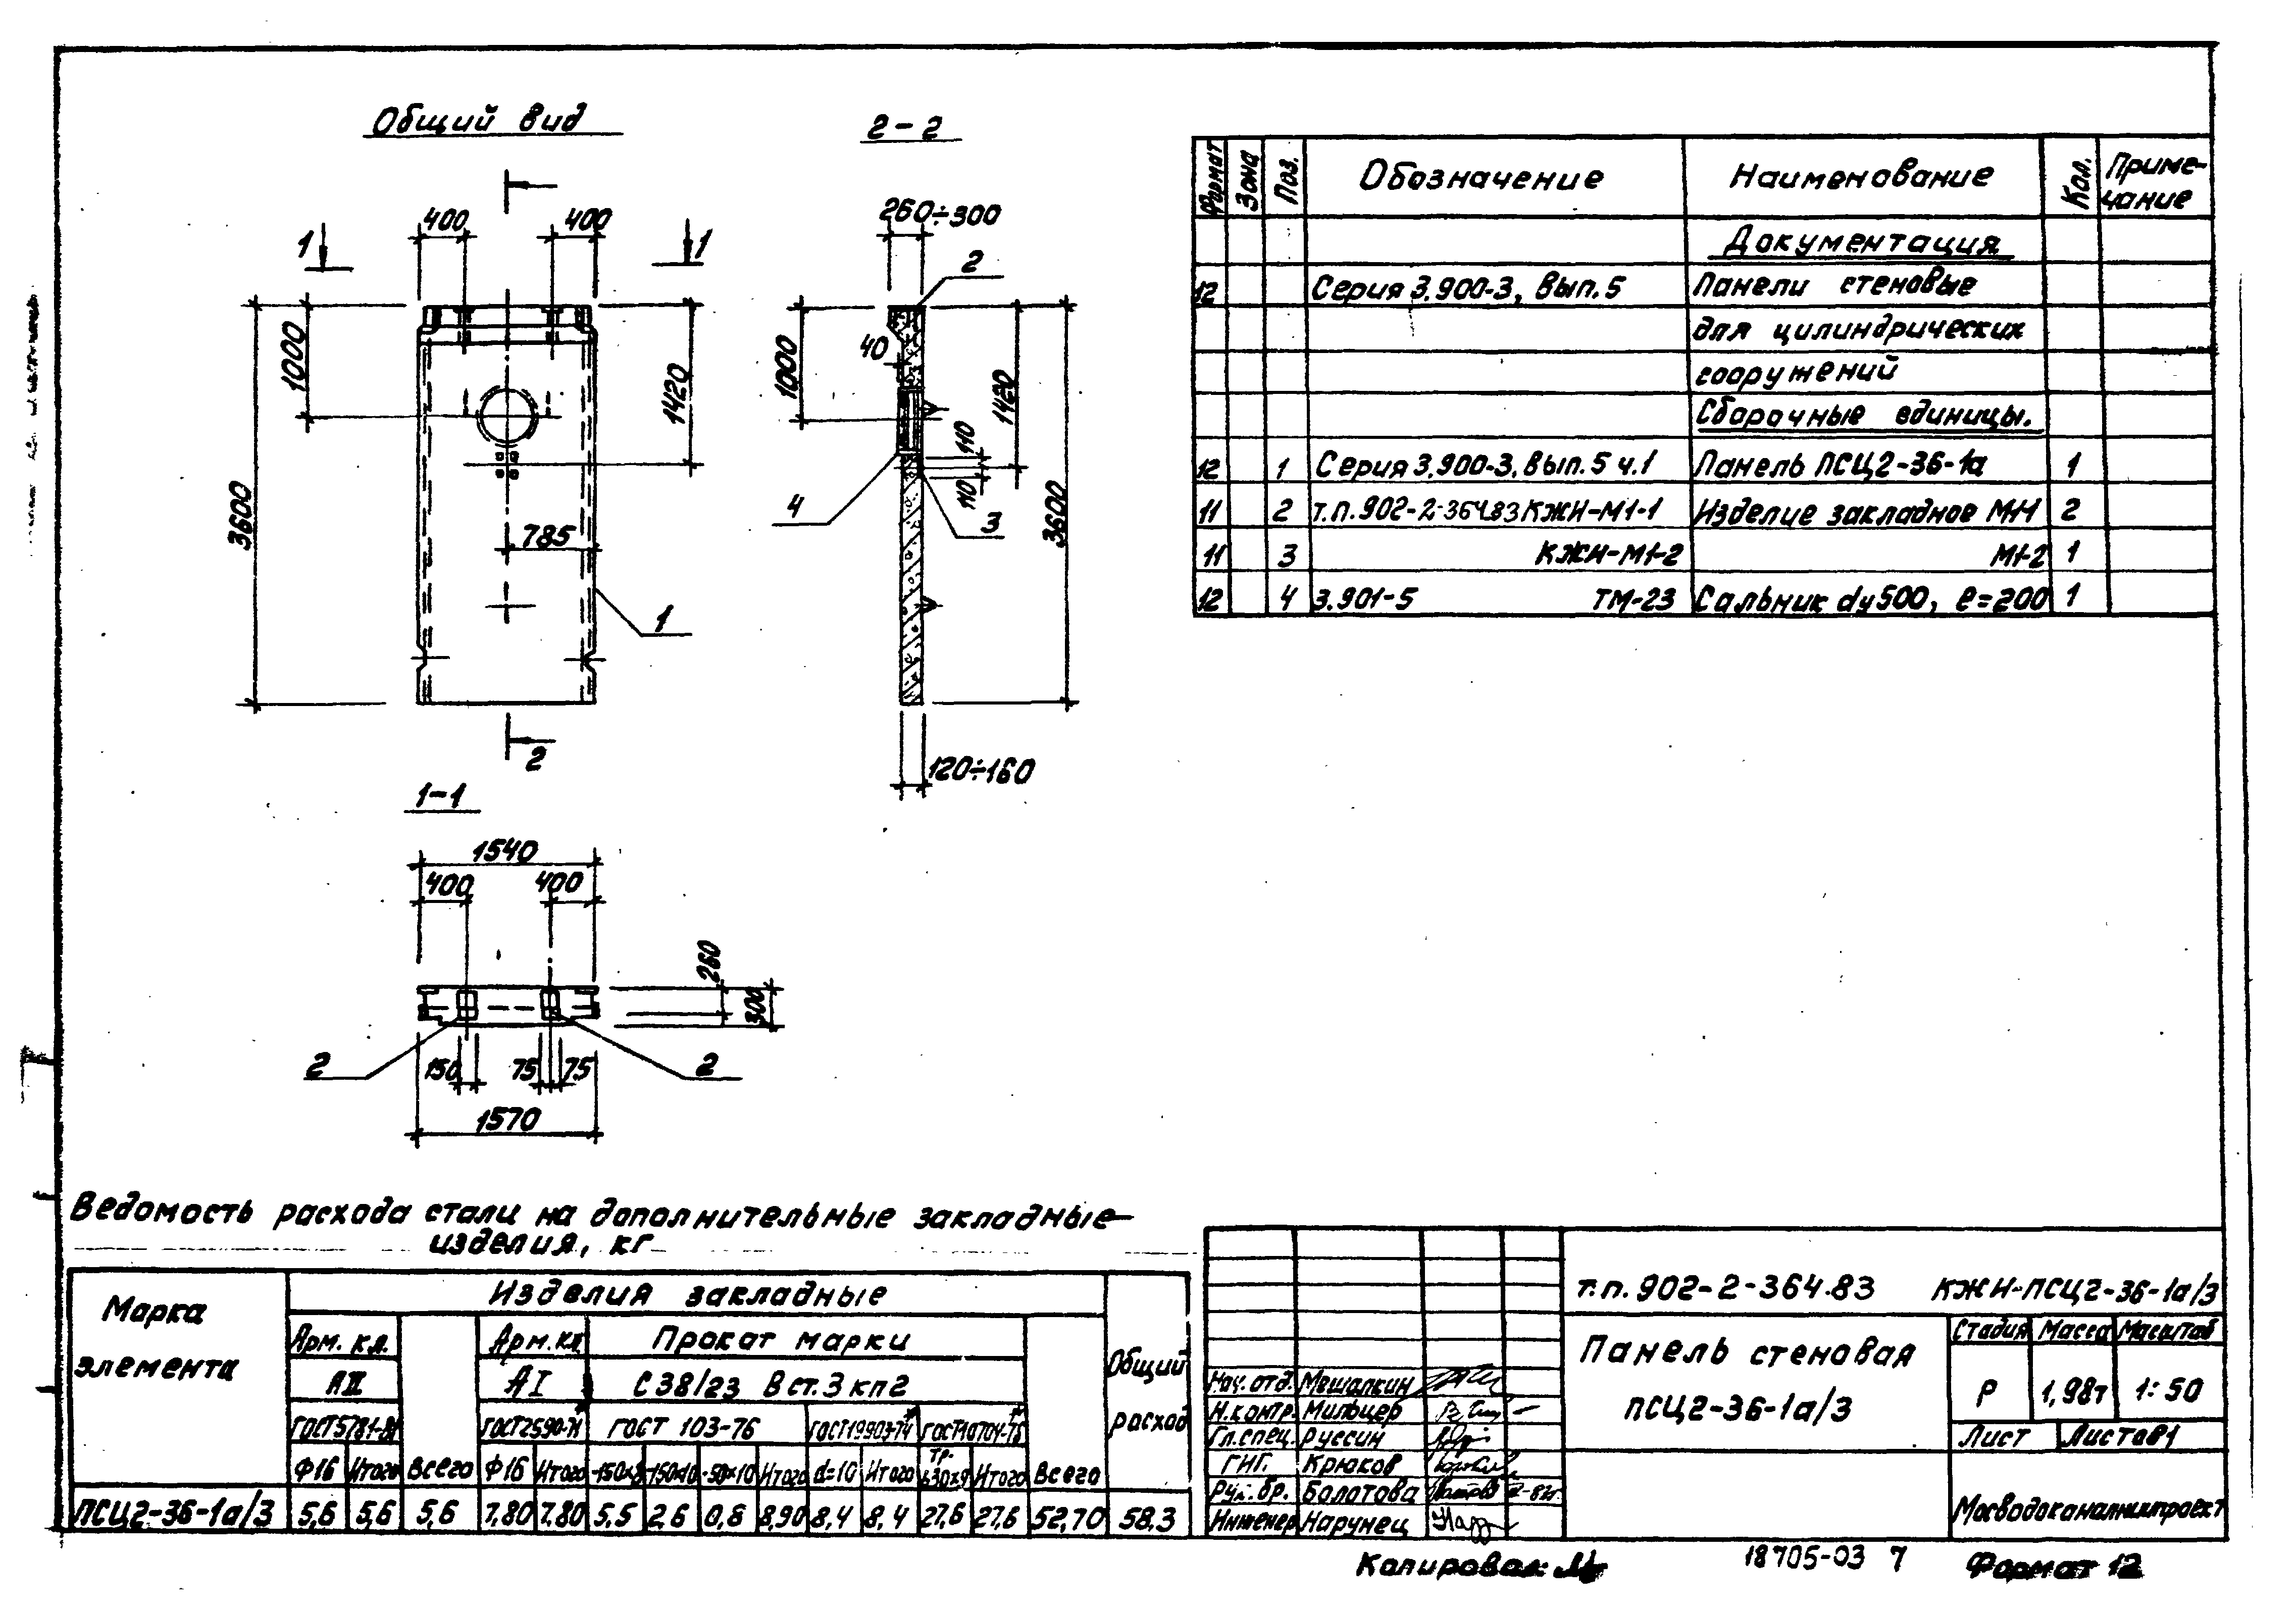 Общий вид
2-2
400
400
1
1
1000
1420
3600
785
1
2
260÷300
2
1000
40
1420
110
110
3600
4
3
120÷160
1-1
1540
400
400
260
300
2
2
150
75
75
1570
Формат Зона Поз. Обозначение Наименование Кол. Приме-
чание
Документация
12 Серия 3.900-3, вып. 5 Панели стеновые
для цилиндрических
сооружений
Сборочные единицы.
12 1 Серия 3.900-3. вып. 5 ч.1 Панель ПСЦ2-36-1а 1
11 2 т.п. 902-2-364.83 КЖИ-М1-1 Изделие закладное М1-1 2
11 3 КЖИ-М1-2 М1-2 1
12 4 3.901-5 ТМ-23 Сальник dу500, e=200 1
Ведомость расхода стали на дополнительные закладные
изделия, кг
Марка
элемента
Изделия закладные
Общий
расход
Арм. кл. Арм. кл Прокат марки
АIII АI С38/23 Вст.3кп2
ГОСТ5781-81 ГОСТ2590-71* ГОСТ 103-76 ГОСТ19903-74* ГОСТ10704-76*
Ф16 Итого Всего Ф16 Итого -150×8 -150×10 -50×10 Итого d=10 Итого Тр. 630×9 Итого Всего
ПСЦ2-36-1а/3 5,6 5,6 5,6 7,80 7.80 5,5 2,6 0,8 8,90 8,4 8,4 27,6 27,6 52,70 58.3
т.п. 902-2-364.83 КЖИ-ПСЦ2-36-1а/3
Панель стеновая
ПСЦ2-36-1а/3
Стадия Масса Масштаб
Р 1,98т 1:50
Лист Листов 1
Мосводоканалниипроект
Нач. отд. Мешалкин
Н.контр. Мильцер
Гл.спец. Руссин
ГИГ. Крюков
Рук. бр. Болотова
Инженер Нарунец
Копировал:
18705-03 7
Формат 12